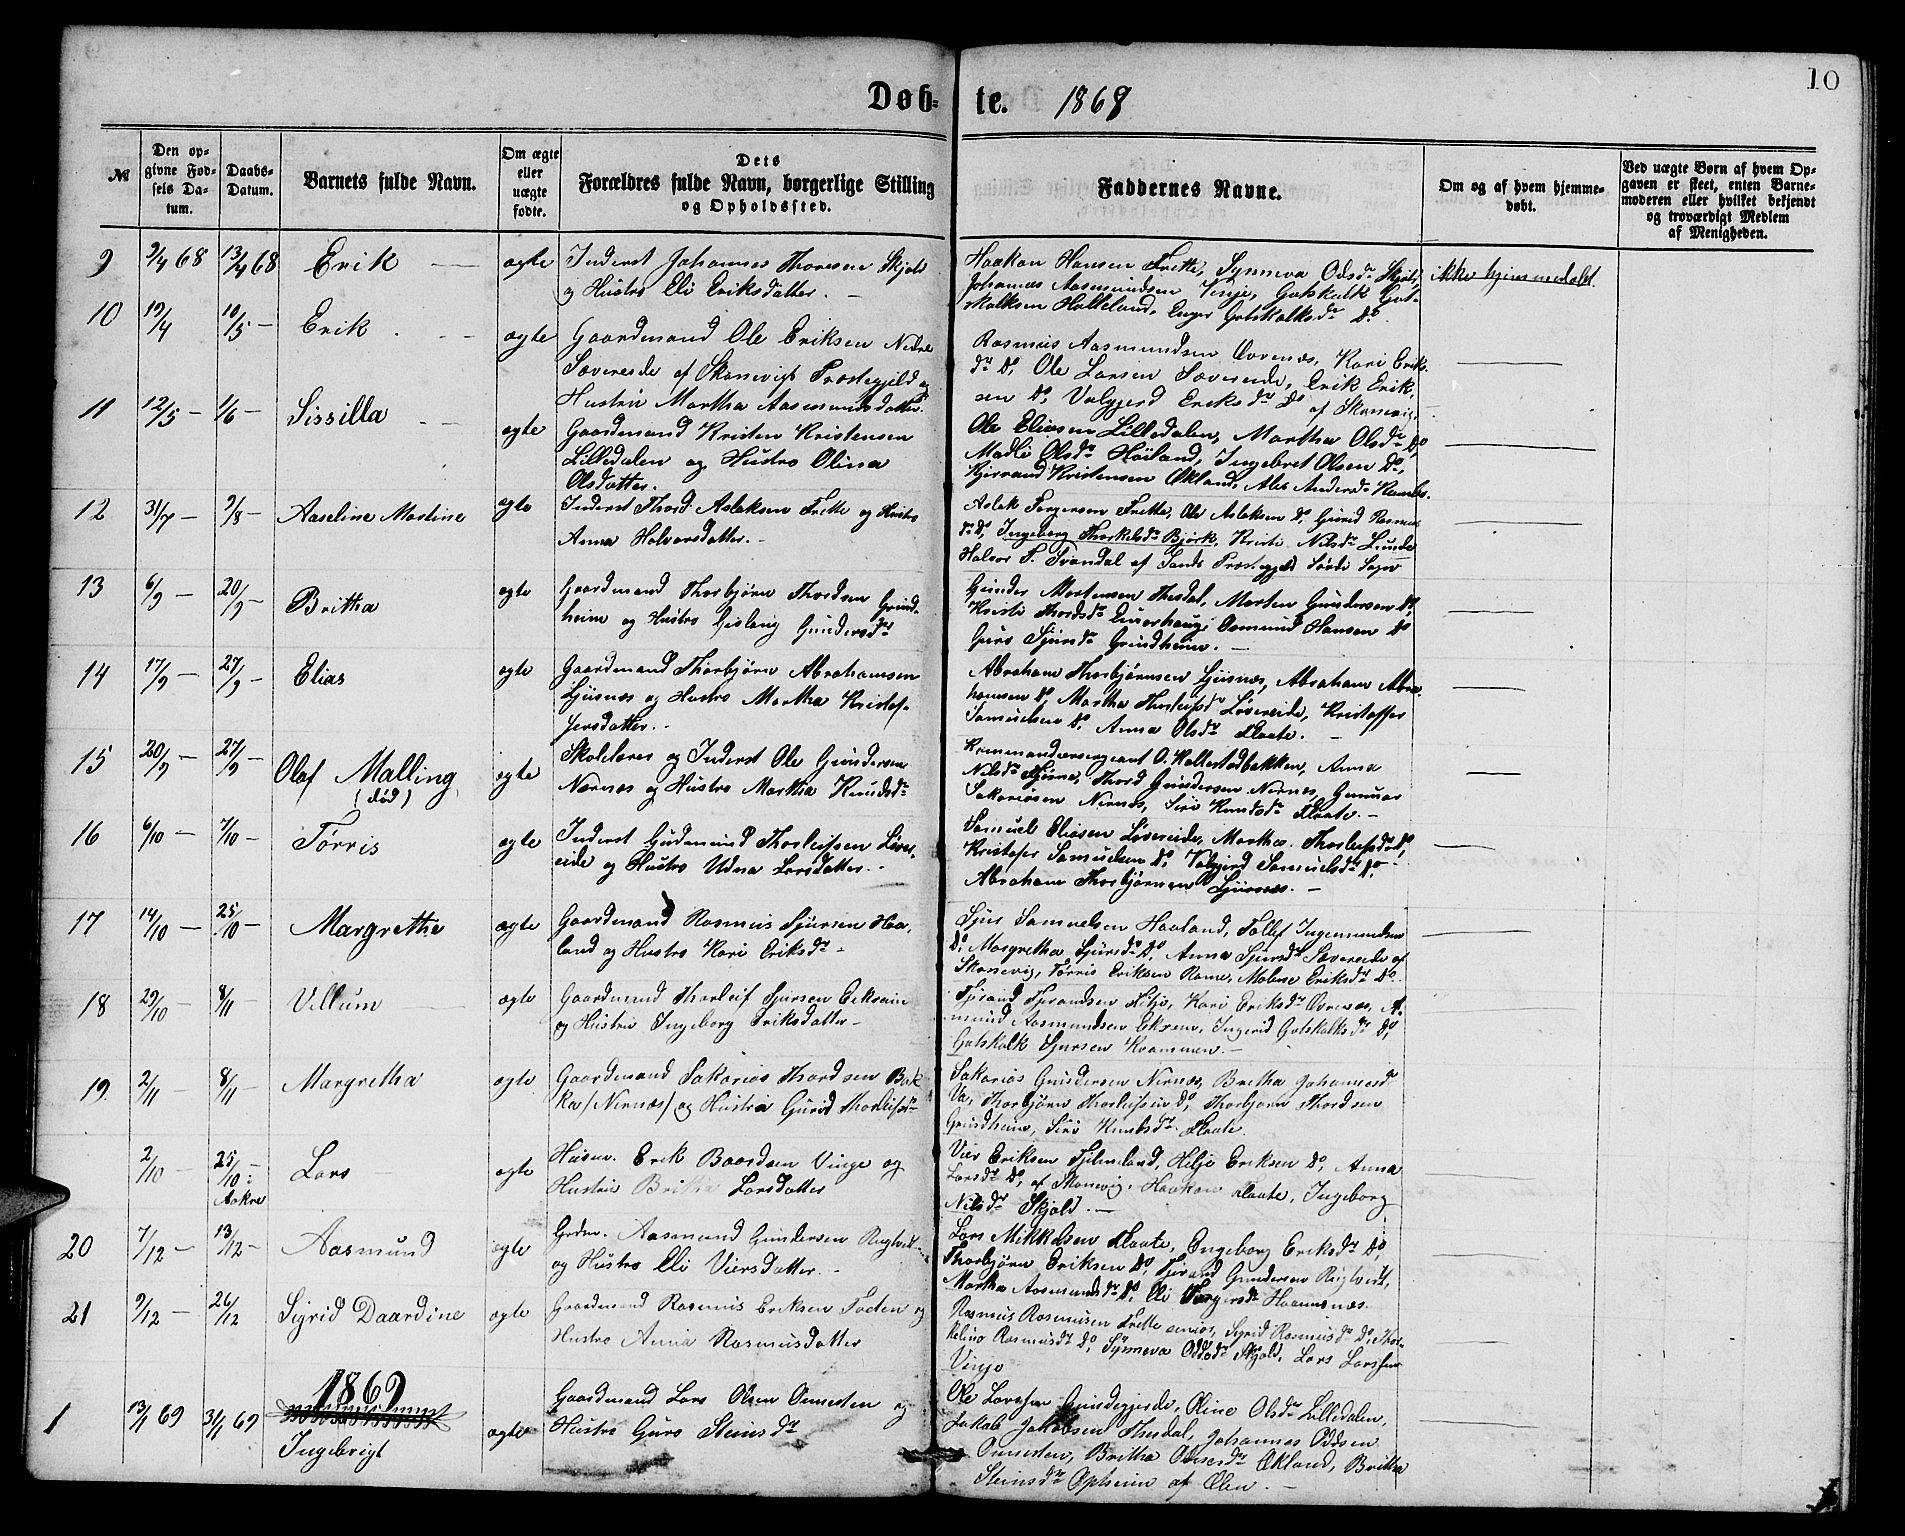 10
Døb- te. 1868
№
Den opgivne Fødsels Datum.
Daabs-Datum.
Barnets fulde Navn.
Om ægte eller uægte fødte.
Dets Forældres fulde Navn, borgerlige Stilling og Opholdssted.
Faddernes Navne.
Om og af hvem hjemmedøbt.
Ved uægte Børn af hvem Opgaven er skeet, enten Barnemoderen eller hvilket bekjendt og troværdigt Medlem af Menigheden.
9 9/4 68 13/4 68 Erik ægte Inderst Johannes Thoresen Skjold
og Hustro Eli Eriksdatter.
Haakon Hansen Frette, Synneva Odsdr Skjold,
Johannes Aasmundsen Vinje, Gotskalk Got-
skalksen Halleland, Inger Gotskalksdr Do
ikke hjemmedøbt.
10 19/4 10/5 Erik ægte Gaardmand Ole Eriksen Nedre
Sævereide af Skonevigs Præstegjeld og
Hustru Martha Aasmundsdatter.
Rasmus Aasmundsen Øvrenæs, Kari Erik-
dr Do, Ole Larsen Sævereide, Erik Erik-
sen Do, Valgjerd Eriksdr Do af Skonevig.
11 12/5 1/6 Sissilla ægte Gaardmand Kristen Kristensen
Lilledalen og Hustro Olina
Olsdatter.
Ole Eliasen Lilledalen, Martha Olsdr Do
Madli Olsdr Høiland, Ingebret Olsen Do,
Kristensen Økland,
12 31/7 9/8 Aaseline Martine ægte Inderst Thord Aslaksen Frette og Hustro
Anna Halvorsdatter.
Aslak Torgersen Frette, Ole Aslaksen Do, Gurid Rasmus-
dr Do, Ingeborg Thorkelsdr Bjørk, Kristi Nilsdr Lunde
Halvor T. Tvandal af Sands Præstegjeld Sovde Sogn
13 6/9 20/9 Brittha ægte Gaardmand Thorbjørn Thordsen Grind-
heim og Hustro Gislaug Gundersdtr
Gunder Mortensen Thesdal, Morten Gundersen Do,
Kristi Thordsdr Osmund Hansen Do
Guro Sjursdr Grindheim.
14 17/9 27/9 Elias ægte Gaardmand Thorbjørn Abrahamsen
Ljusnæs og Hustro Martha Kristof-
fersdatter.
Abraham Thorbjørnsen Ljusnæs, Abraham Abra-
hamsen Do, Martha Thorleifsdr Løvereide, Kristoffer
Samuelsen Do, Anna Olsdr Flaate.
15 20/9 27/9 Olaf Malling
(død)
ægte Skolelærer og Inderst Ole Gundersen
Nærnæs og Hustro Martha Knudsdr
Kommandersergeant O. Hallestadbakken, Anna
Nilsdr Thord Gundersen Nernæs, Gunnar
Sakariasen Nernæs, Siri Knudsdr Flaate.
16 6/10 7/10 Tørris ægte Inderst Gudmund Thorleifsen Løver-
eide og Hustro Udna Larsdatter.
Samuel Eliasen Løvereide, Martha Thorleifsdr Do,
Kristofer Samuelsen Do, Valgjerd Samuelsdr Do
Abraham Thorbjørnsen Ljusnæs.
17 14/10 25/10 Margrethe ægte Gaardmand Rasmus Sjursen Haa-
land og Hustro Kari Eriksdr
Sjur Samuelsen Haaland, Tollef Ingemundsen
Do, Margretha Sjursdr Do, Anna Sjursdr Sævereide af
Skonevig, Tørris Eriksen Rame, Malene Eriksdr Do
18 29/10 8/11 Villum ægte Gaardmand Thorleif Sjursen Eikrein
og Hustru Ingeborg Eriksdatter
Tjerand Tjerandsen Kari Eriksdr Øvrenæs, A-
mund Aasmundsen Ingerid Gotskalksdr Do,
Gotskalk Sjursen Kvammen.
19 2/11 8/11 Margretha ægte Gaardmand Sakarias Thordsen Bak-
ka (Nernæs) og Hustru Gurid Thorleifsdr
Sakarias Gundersen Nernæs, Bretha Johannesdr
Va, Thorbjørn Thorleifsen Do, Thorbjørn Thordsen
Grindheim, Siri Knudsdr Flaate
2/10 25/10 Aakre Lars ægte Husm. Erik Baardsen Vinge og
Hustru Britha Larsdatter
Vier Eriksen Fjelmeland, Helje Eriksen Do, Anna
Larsdr Do, af Skonevig, Haakon Flaate, Ingeborg
Nilsdr Skjold.
20 7/12 13/12 Aasmund ægte Grdm. Aasmund Gundersen Rygtveit
og Hustro Eli Viersdatter.
Lars Mikkelsen Flaate, Ingeborg Eriksdr Do,
Thorbjørn Eriksen Do, Tjerand Gundersen Rygtveit,
Martha Aasmundsdr Do, Eli Torgersdr Hammenæs
21 9/12 26/12 Sigrid Daardine ægte Gaardmand Rasmus Eriksen Foden og
Hustro Anna Rasmusdatter
Rasmus Rasmusen Frette senior, Sigrid Rasmusdr Do, Thor-
keline Rasmusdr Do, Synneva Oddsdr Skjold, Lars Larssen
Vinje
1869
1 13/1 69 31/1 69 Ingebrigt ægte Gaardmand Lars Olsen Omesten og
Hustro Guro Steinsdr
Ole Larssen Grindegjerde, Oline Olsdr Lilledalen,
Jakob Jakobsen Thesdal, Johannes Oddsen
Omesten, Britha Økland, Britha
Steinsdr Opheim af Ølen.